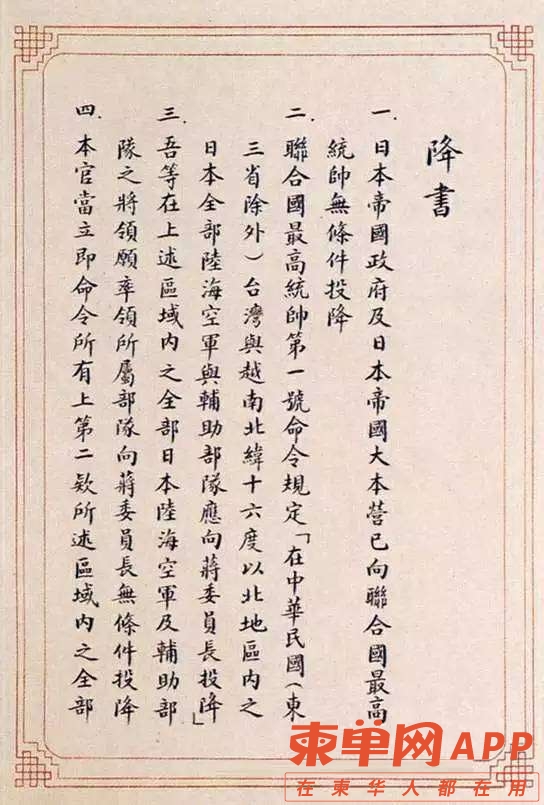 降書
一．日本帝國政府及日本帝國大本營已向聯合國最高
統帥無條件投降
二．聯合國最高統帥第一號命令規定「在中華民國（東
三省除外）台灣與越南北緯十六度以北地區內之
日本全部陸海空軍與輔助部隊應向蔣委員長投降」
三．吾等在上述區域內之全部日本陸海空軍及輔助部
隊之將領願率領所屬部隊向蔣委員長無條件投降
四．本官當立即命令所有上第二款所述區域內之全部
柬单网APP
在柬华人都在用